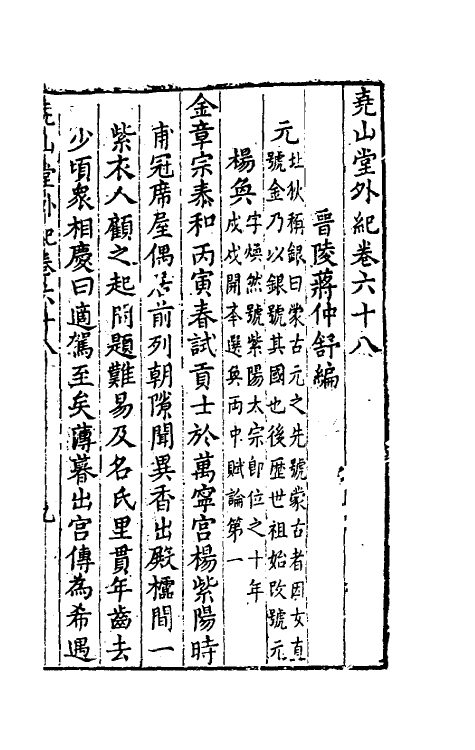 堯山堂外紀卷六十八
晉陵蔣仲舒編
元
北狄稱銀曰蒙古元之先號蒙古者因女直
號金乃以銀號其國也後歴世祖始改號元
楊奐
字煥然號紫陽太宗卽位之十年
戊戌開本選奐兩中賦論第一
金章宗泰和丙寅春試貢士於萬寧宫楊紫陽時
甫冠席屋偶居前列朝隙聞異香出殿櫺間一
紫衣人顧之起問題難易及名氏里貫年齒去
少頃衆相慶曰適駕至矣薄暮出宫傳為希遇
堯山堂外紀卷六十八